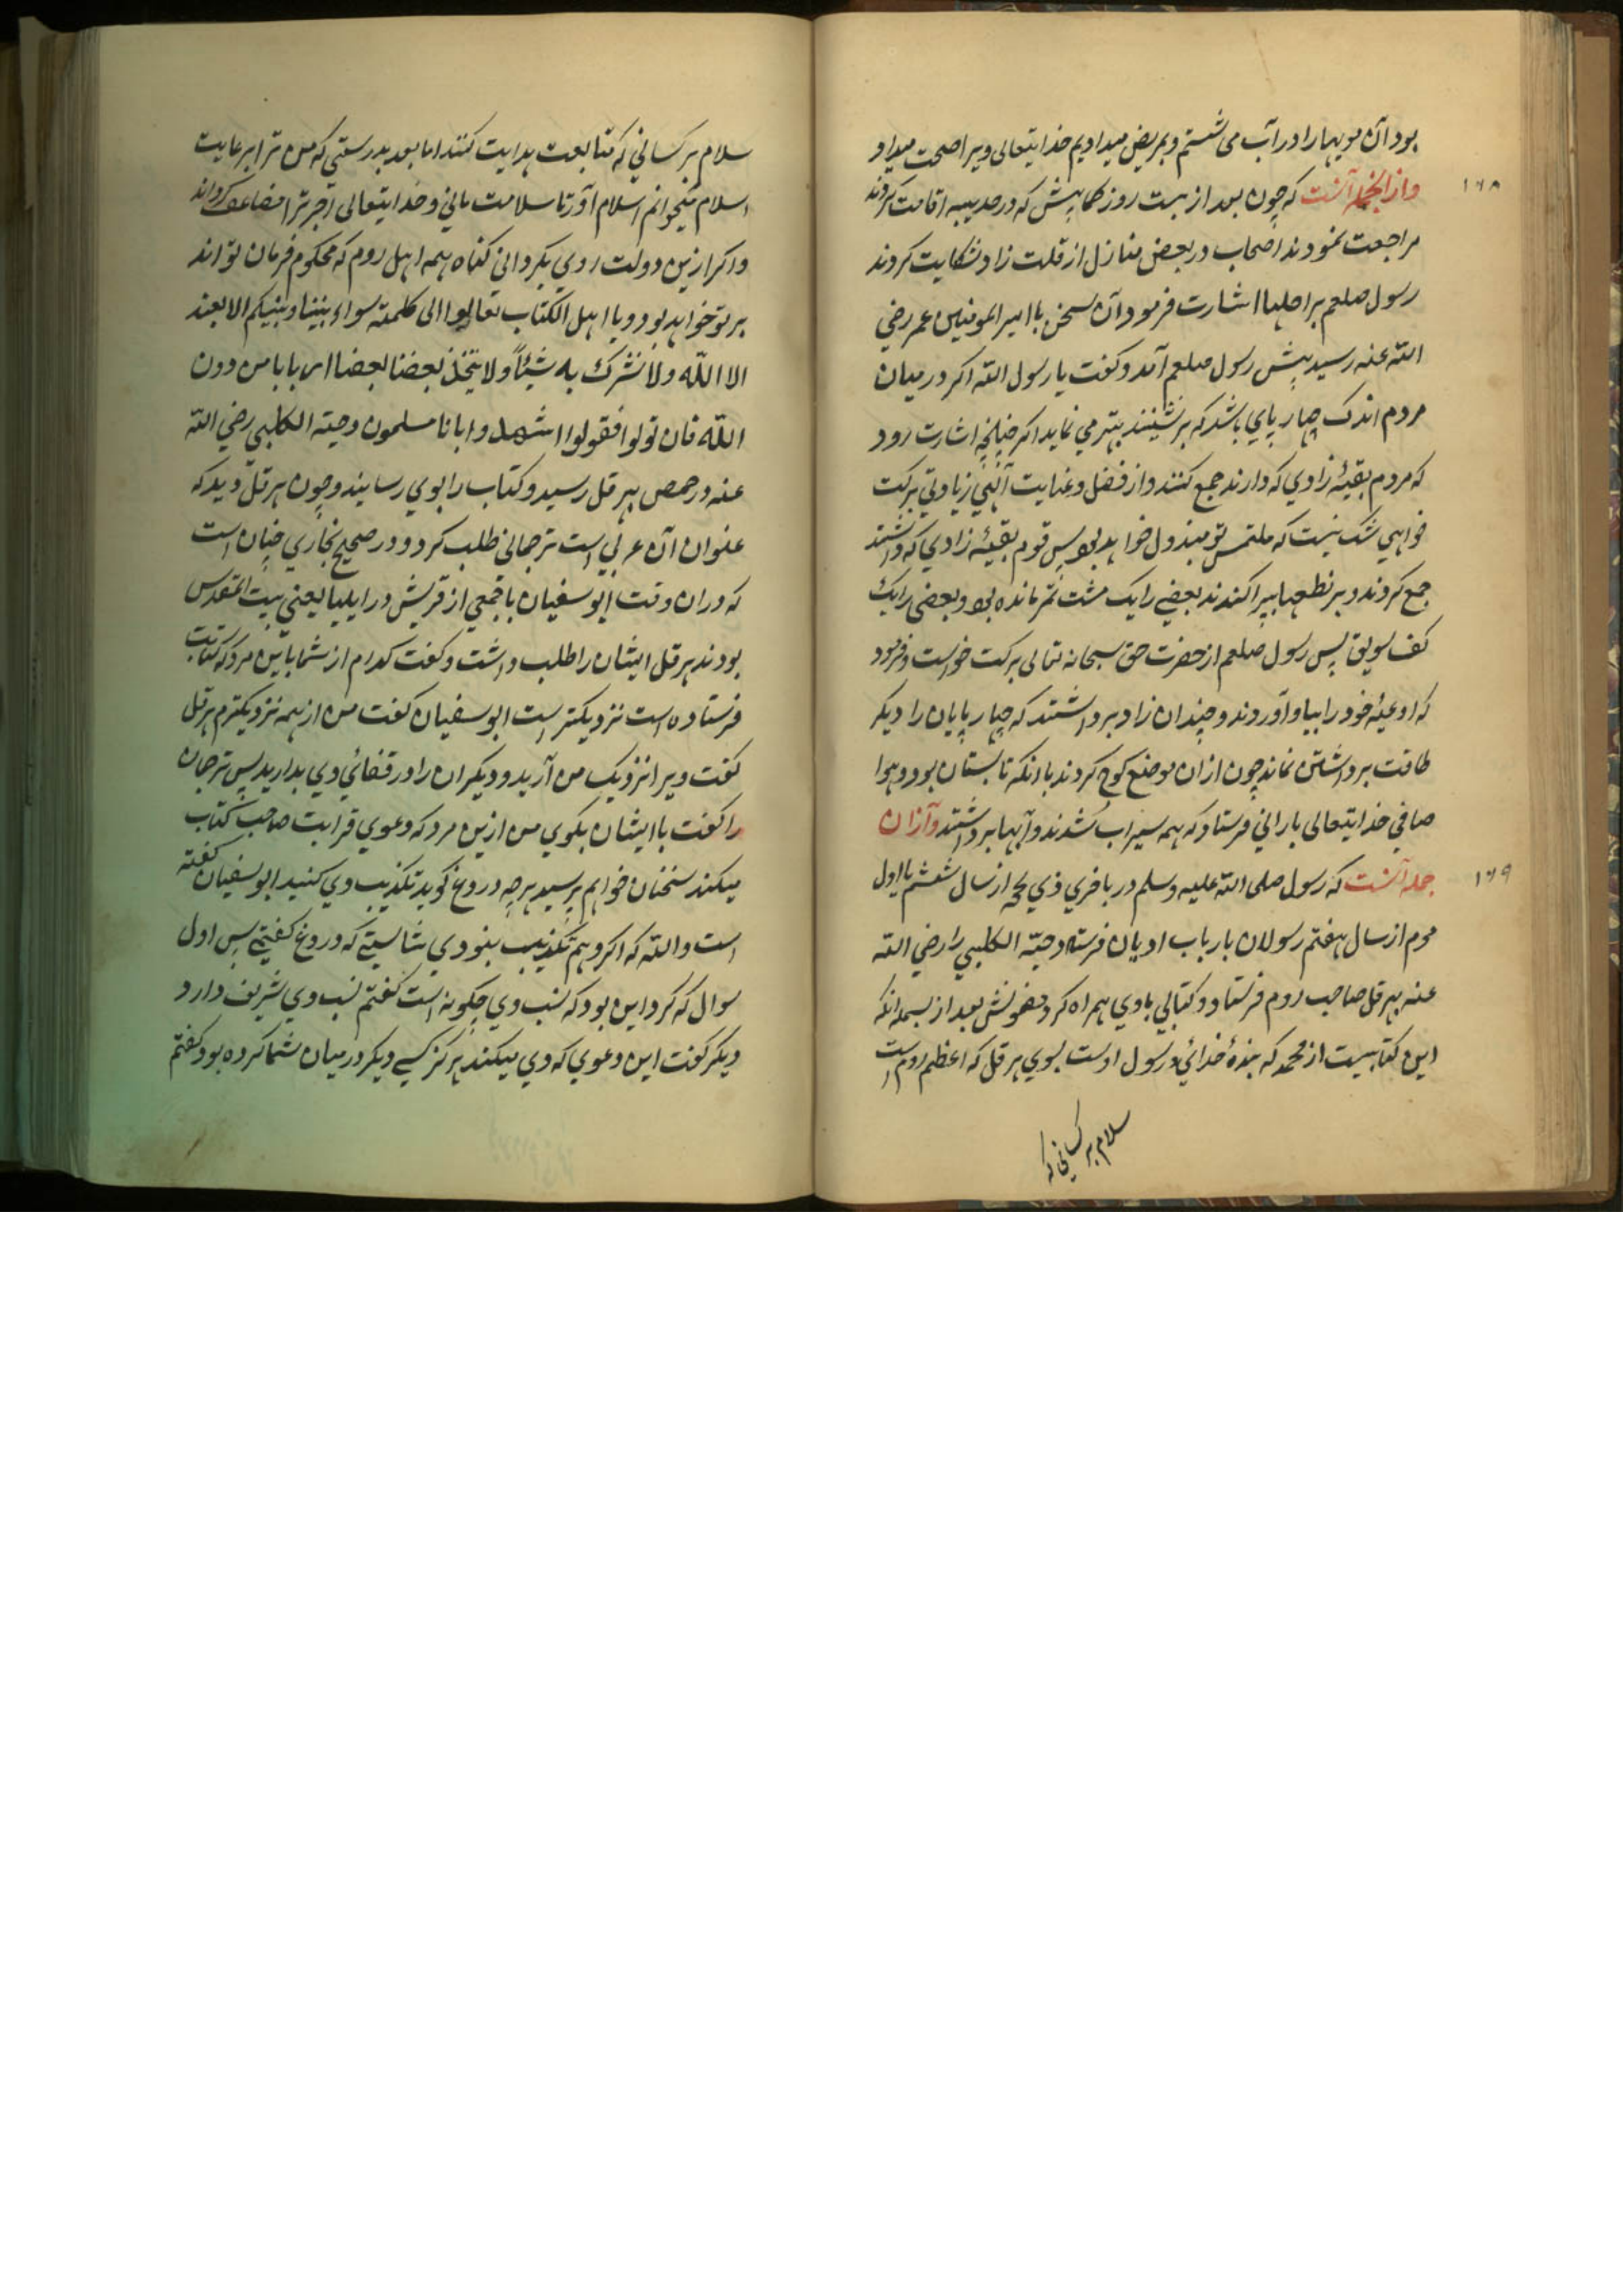 بود آن مویهارا در آب می شستم و بمریض میدادیم خدایتعالی ویرا صحت میداد
۱۶۸
وازانجمله آنست که چون بعد از بیست روز کمابیش که در حدیبیه اقامت کردند
مراجعت نمودند اصحاب در بعض منازل از قلت زاد شکایت کردند
رسول صلعم براحلها اشارت فرمود آن سخن با امیر المومنین عمر رضی
الله عنه رسید پیش رسول صلعم آمد و کفت یا رسول الله اکر در میان
مردم اندک چهار پای باشد که برنشینند بهتر می نماید اکر چنانچه اشارت رود
که مردم بقیهٔ زادی که دارند جمع کنند و از فضل و عنایت آلهی زیادتی برکت
خواهی شک نیست که ملتمس تو مبذول خواهد بود پس قوم بقیهٔ زادی که داشتند
جمع کردند و بر نطعها بپراکندند بعضے را یک مشت تمر مانده بود و بعضی را یک
کف سویق پس رسول صلعم از حضرت حق سبحانه تعالی برکت خواست و فرمود
که اوعیهٔ خود را بیاوآوردند و چندان زاد برداشتند که چهار پایان را دیکر
طاقت برداشتن نماند چون ازان موضع کوچ کردند باانکه تابستان بود و هوا
صافی خدایتعالی بارانی فرستاد که همه سیراب شدند و آبها برداشتند وآزان
۱۶۹
جمله آنست که رسول صلی الله علیه وسلم در باخری ذی لحجه از سال ششم یا اول
محرم از سال هفتم رسولان بارباب ادیان فرستاد دحیة الکلبی را رضی الله
عنه بهرقل صاحب روم فرستاد و کتابی باوی همراه کرد مضمونش بعد از بسمله انکه
این کتابیست از محمد که بندهٔ خدائی و رسول اوست بسوی هرقل که اعظم روم است
سلام بر کسانی که
سلام بر کسانی که متابعت هدایت کنند اما بعد بدرستی که من ترا برعایت
اسلام میخوانم اسلام آور تا سلامت مانی و خدایتعالی اجر ترا مضاعف کرداند
و اکر ازین دولت روی بکردانی کناه همه اهل روم که محکوم فرمان تو اند
بر تو خواهد بود و یا اهل الکتاب تعالوا الی کلمة سواء بیننا و بینکم الا نعبد
الا الله ولا نشرك به شیئاً ولا یتخذ بعضنا بعضا اربابا من دون
الله فان تولوا فقولوا اشهدوا بانا مسلمون دحیة الکلبی رضی الله
عنه در حمص بهرقل رسید و کتاب را بوی رسانید و چون هرقل دید که
عنوان آن عربی است ترجمانی طلب کرد و در صحیح بخاری چنان است
که دران وقت ابوسفیان با جمعی از قریش در ایلیا یعنی بیت المقدس
بودند هرقل ایشان را طلب داشت و کفت کدام از شما باین مرد که کتابت
فرستاده است نزدیکتر است ابو سفیان کفت من از همه نزدیکترم هرقل
کفت ویرا نزدیک من آرید و دیکران را در قفائی وی بدارید پس ترجمان
را کفت با ایشان بکوی من ازین مرد که دعوی قرابت صاحب کتاب
میکند سخنان خواهم پرسید هرچه دروغ کوید تکذیب وی کنید ابوسفیان کفته
است والله که اکر وهم تکذیب نبودی شایستے که دروغ کفتمے پس اول
سوال که کرد این بود که نسب وی چکونه است کفتم نسب وی شریف دارد
دیکر کفت این دعوی که وی میکند هرکز کسے دیکر در میان شما کرده بود کفتم